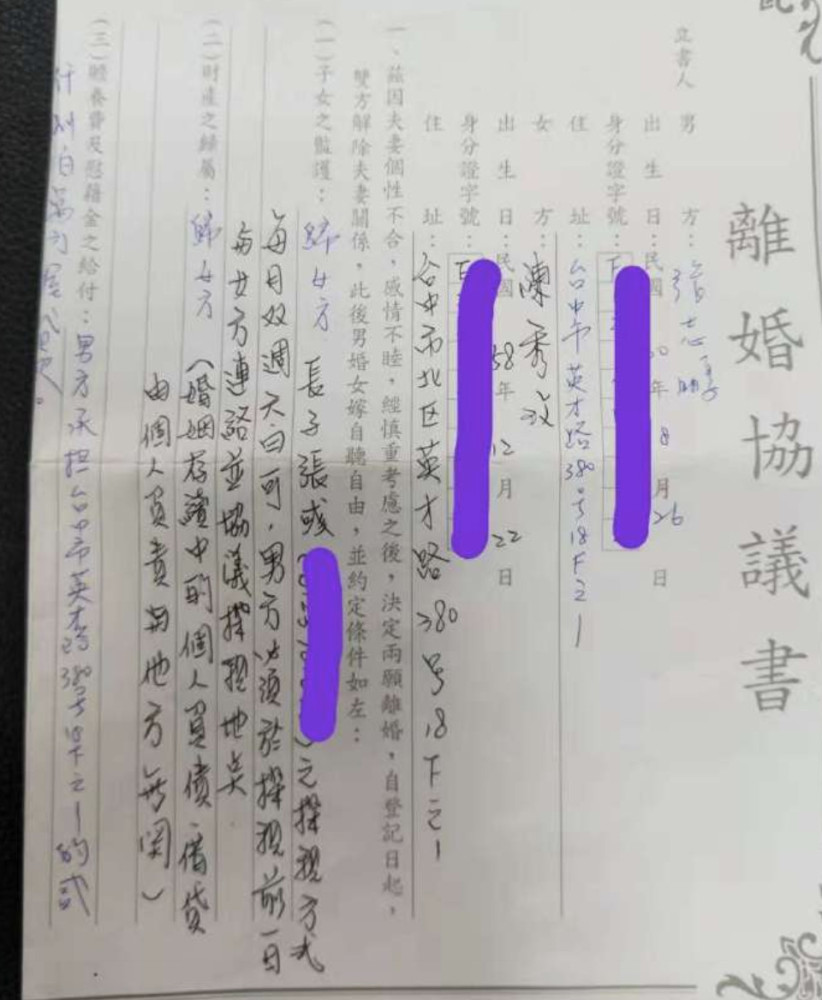 離婚協議書
立書人 男方：張志
出生日：民國 50年8月26日
身分證字號：F
住址：台中市英才路380号18F之1
女方：陳秀
出生日：民國58年12月22日
身分證字號：
住址：台中市北区英才路380号18F之1
一、茲因夫妻個性不合，感情不睦，經慎重考慮之後，決定兩願離婚，自登記日起，
雙方解除夫妻關係，此後男婚女嫁自聽自由，並約定條件如左：
(一)子女之監護：歸女方 長子張彧 之探視方式
每月双週六日可，男方必須於探視前一日
與女方連絡並協議探視地点
(二)財產之歸屬：歸女方（婚姻存續中的個人負債、借貸
由個人負責與他方無関）
(三)贍養費及慰藉金之給付：男方承担台中市英才路380号18F之1的貳
佰